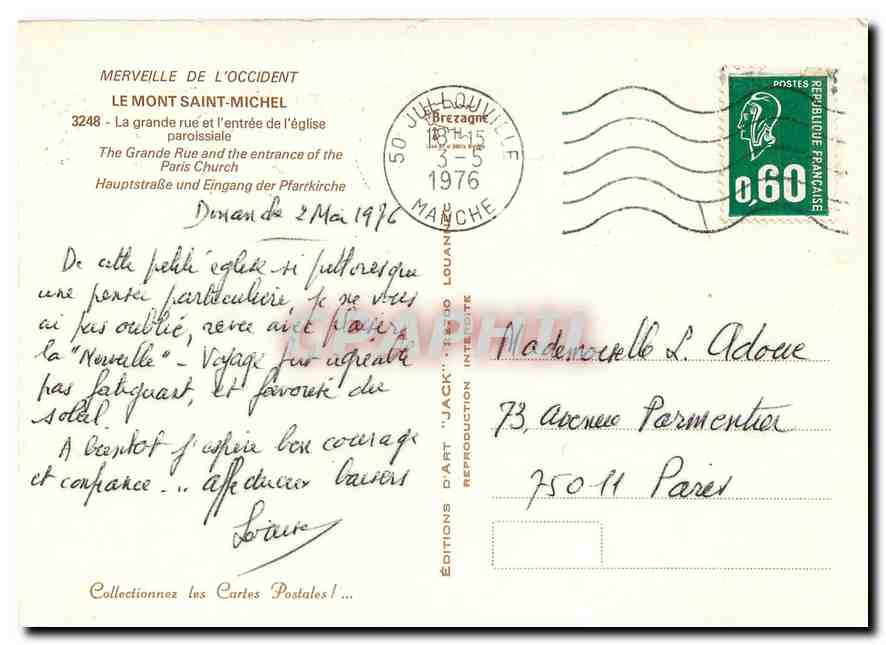 MERVEILLE DE L'OCCIDENT
LE MONT SAINT-MICHEL
3248 - La grande rue et l'entrée de l'église
paroissiale
The Grande Rue and the entrance of the
Paris Church
Hauptstraße und Eingang der Pfarrkirche
2 Mai 1976
De cette petite église si pittoresque
une pensée particulière, je ne vous
ai pas oublié, revu avec plaisir
la "Merveille" - Voyage fort agréable
pas fatiguant, et favorisé du
soleil.
A bientot j'espère bon courage
et confiance... affectueux baisers
Collectionnez les Cartes Postales !...
ÉDITIONS D'ART "JACK"
REPRODUCTION INTERDITE
50 JULLOUVILLE
Bretagne
18H15
3-5
1976
MANCHE
POSTES
REPUBLIQUE FRANÇAISE
0,60
CPAPHIL
Mademoiselle L. Adoue
73, avenue Parmentier
75011 Paris